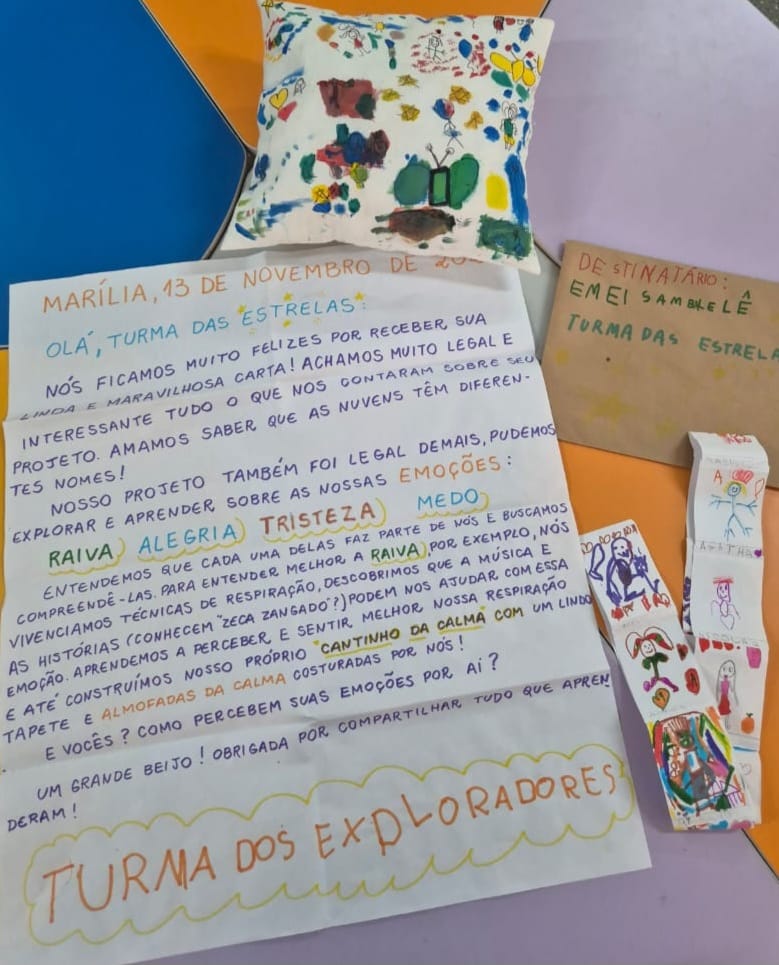 MARÍLIA, 13 DE NOVEMBRO DE
OLÁ, TURMA DAS ESTRELAS:
NÓS FICAMOS MUITO FELIZES POR RECEBER SUA
LINDA E MARAVILHOSA CARTA! ACHAMOS MUITO LEGAL E
INTERESSANTE TUDO O QUE NOS CONTARAM SOBRE SEU
PROJETO. AMAMOS SABER QUE AS NUVENS TÊM DIFEREN-
TES NOMES!
NOSSO PROJETO TAMBÉM FOI LEGAL DEMAIS, PUDEMOS
EXPLORAR E APRENDER SOBRE AS NOSSAS EMOÇÕES:
RAIVA ALEGRIA TRISTEZA MEDO
ENTENDEMOS QUE CADA UMA DELAS FAZ PARTE DE NÓS E BUSCAMOS
COMPREENDÊ-LAS. PARA ENTENDER MELHOR A RAIVA, POR EXEMPLO, NÓS
VIVENCIAMOS TÉCNICAS DE RESPIRAÇÃO, DESCOBRIMOS QUE A MÚSICA E
AS HISTÓRIAS (CONHECEM "ZECA ZANGADO"?) PODEM NOS AJUDAR COM ESSA
EMOÇÃO. APRENDEMOS A PERCEBER E SENTIR MELHOR NOSSA RESPIRAÇÃO
E ATÉ CONSTRUÍMOS NOSSO PRÓPRIO "CANTINHO DA CALMA" COM UM LINDO
TAPETE E ALMOFADAS DA CALMA COSTURADAS POR NÓS!
E VOCÊS? COMO PERCEBEM SUAS EMOÇÕES POR AÍ?
UM GRANDE BEIJO! OBRIGADA POR COMPARTILHAR TUDO QUE APREN
DERAM!
TURMA DOS EXPLORADORES
DESTINATÁRIO:
EMEI SAMBRELÊ
TURMA DAS ESTRELA
AGATHA